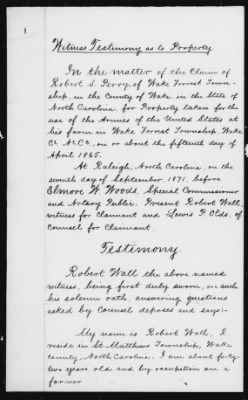 1
Witness Testimony as to Property
In the matter of the Claim of
Robert S. Perry of Wake Forrest Town-
ship, in the County of Wake, in the State of
North Carolina, for Property taken for the
use of the Armies of the United States at
his farm in Wake Forrest Township, Wake
Co. N.C., on or about the fifteenth day of
April 1865.
At Raleigh, North Carolina, on the
seventh day of September, 1871, before
Elmore W Woods, Special Commissioner
and Notary Public. Present Robert Wall,
witness for Claimant and Lewis P. Olds, of
Counsel for Claimant.
Testimony.
Robert Wall the above named
witness, being first duly sworn, on such
his solemn oath, answering questions
asked by Counsel deposes and says:-
My name is Robert Wall, I
reside in St. Matthews Township, Wake
county, North Carolina. I am about forty-
two years old and by occupation am a
farmer